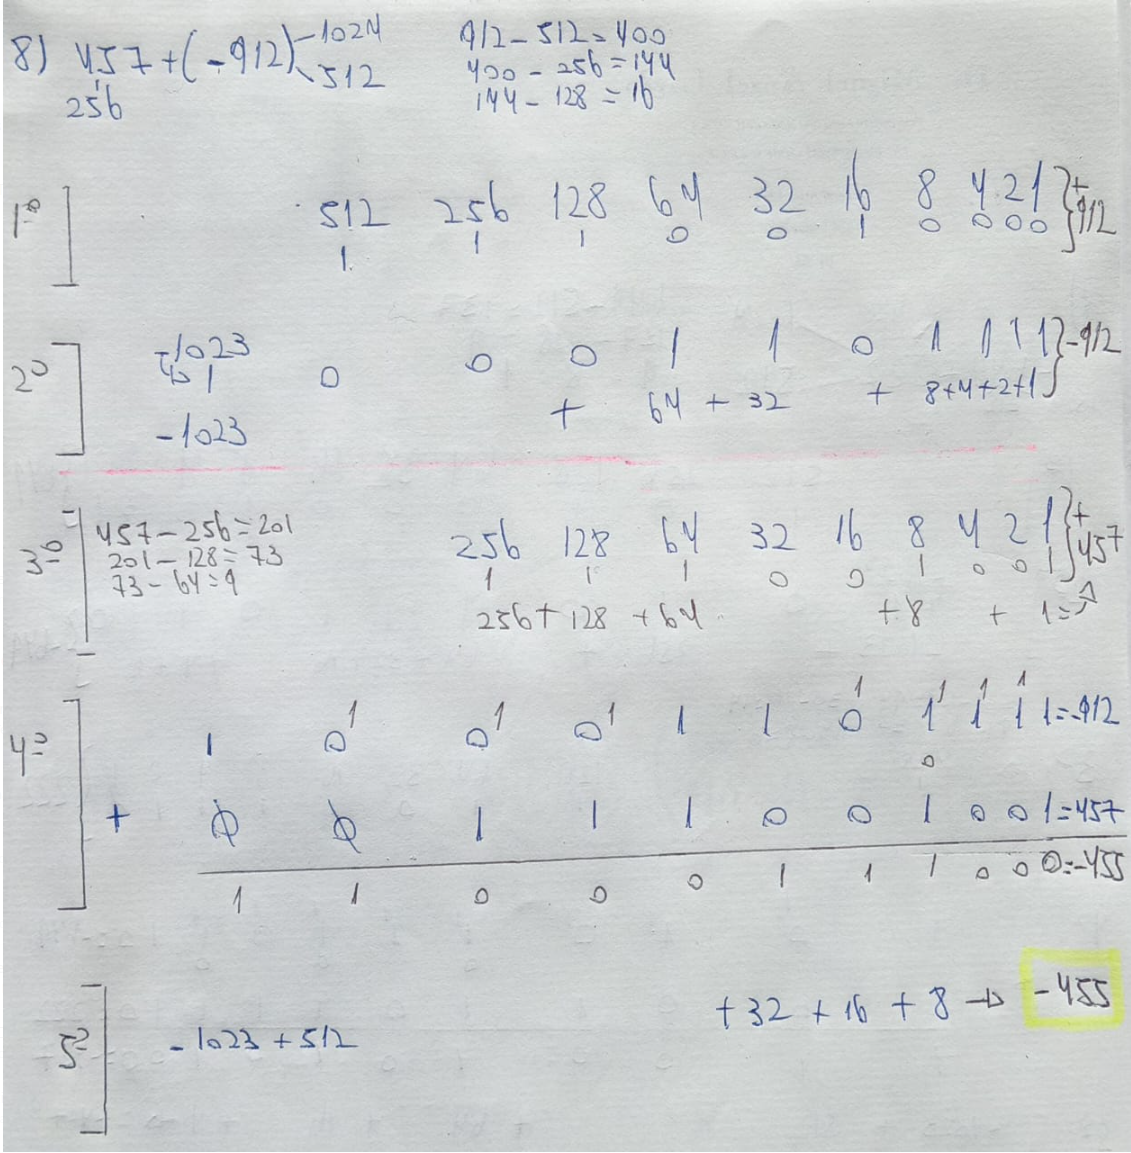 8) 457 + (-912) -1024
512
256
912 - 512 = 400
400 - 256 = 144
144 - 128 = 16
1º] 512 256 128 64 32 16 8 4 2 1 } + 912
1 1 1 0 0 1 0 0 0 0
2º] -1023 0 0 0 1 1 0 1 1 1 1 } -912
1 + 64 + 32 + 8+4+2+1
-1023
3º] 457 - 256 = 201
201 - 128 = 73
73 - 64 = 9
256 128 64 32 16 8 4 2 1 } + 457
1 1 1 0 0 1 0 0 1
256 + 128 + 64 + 8 + 1 =
1 1 1 1 1 1 1
4º] 1 0 0 0 1 1 0 1 1 1 1 = -912
0
+ 0 0 1 1 1 0 0 1 0 0 1 = 457
1 1 0 0 0 1 1 1 0 0 0 = -455
5º] -1023 + 512 + 32 + 16 + 8 → -455